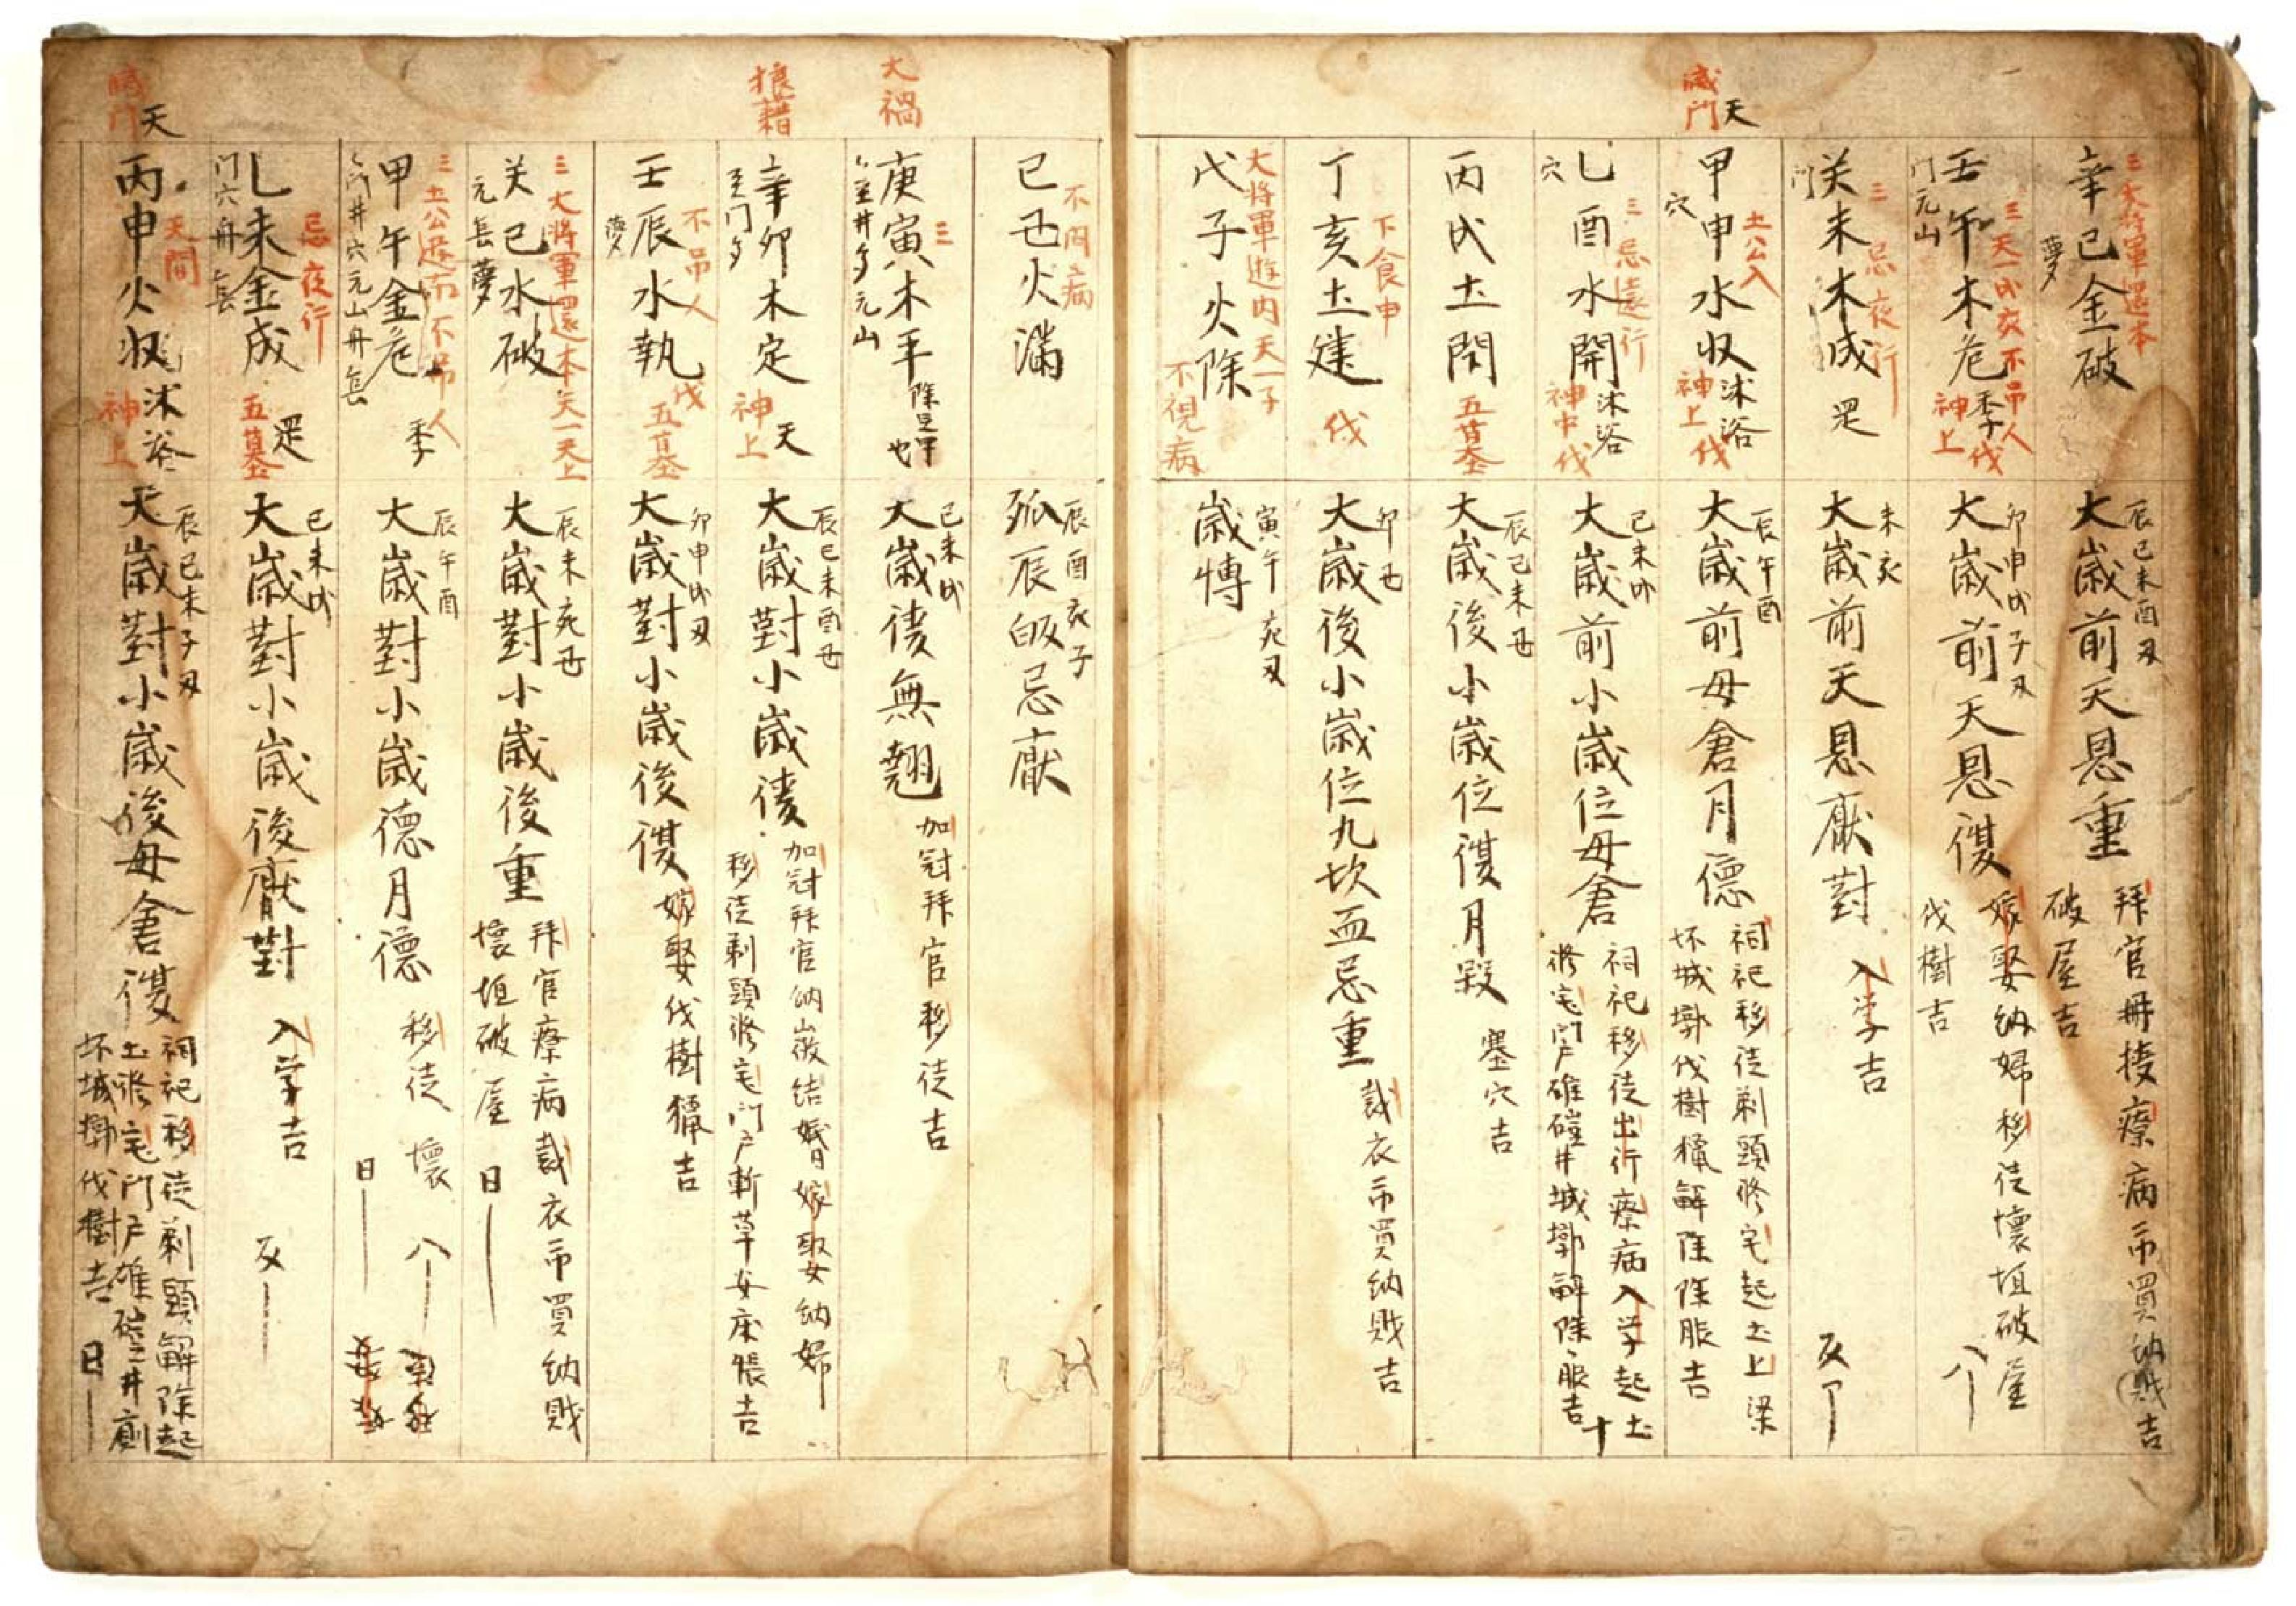 三 大将軍還本
辛巳金破
夢
辰巳未酉丑
大歳前天恩重
拜官冊授療病市買納財吉
破屋吉
三 天一卯亥不吊人
壬午木危
門元山
季
神上
伐
卯申戌子丑
大歳前天恩復
嫁娶納婦移徙壞垣破屋
伐樹吉
八
三 忌夜行
癸未木成
門
罡
未亥
大歳前天恩厭對
入学吉
滅門
天
土公入
甲申水収
穴
沐浴
神上
伐
辰午酉
大歳前母倉月德
祠祀移徙剃頭修宅起土上梁
坏城墎伐樹獵解除除服吉
三 忌遠行
乙酉水開
穴
沐浴
神中
伐
大歳前小歳位母倉
祠祀移徙出行療病入学起土
修宅門戶碓磑井城墎解除服吉
丙戌土閇
五墓
辰巳未丑
大歳後小歳位復月殺
塞穴吉
下食申
丁亥土建
伐
卯丑
大歳後小歳位九坎血忌重
裁衣市買納財吉
大将軍遊内天一子
戊子火除
不視病
歳博
不問病
己丑火満
辰酉亥子
孤辰 忌厭
大禍
三
庚寅木平
巳未戌
大歳後無翹
加冠拜官移徙吉
狼藉
辛卯木定
神上
天
辰巳未酉丑
大歳對小歳後
加冠拜官納 結婚嫁娶納婦
移徙剃頭修宅門戶斬草安床帳吉
不吊人
壬辰水執
夢
伐
五墓
卯申戌丑
大歳對小歳後復
嫁娶伐樹獵吉
三 大将軍還本天一天上
癸巳水破
夢
辰未亥丑
大歳對小歳後重
拜官療病裁衣市買納財
壞垣破屋
日
三 土公遊 不吊人
甲午金危
井穴元山舟
季
辰午酉
大歳對小歳德月德
移徙 壞
八
日
忌夜行
乙未金成
門穴舟
罡
五墓
巳未戌
大歳對小歳後厭對
入学吉
滅門
天
天間
丙申火収
沐浴
神上
辰巳未子丑
大歳對小歳後母倉復
祠祀移徙剃頭解除起
土修宅門戶碓磑井廁
坏城墎伐樹吉
日